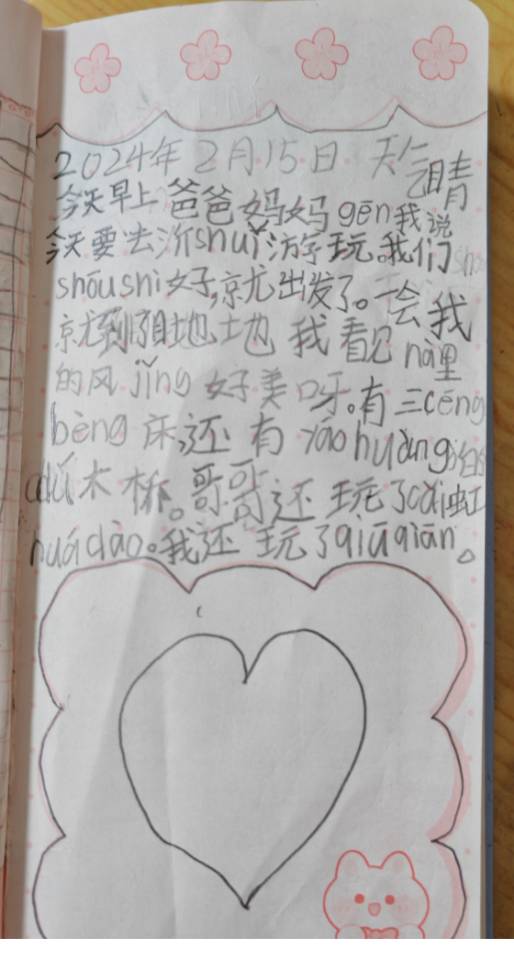 2024年2月15日 天气晴
今天早上爸爸妈妈gēn我说
今天要去沂shuǐ游玩。我们
shōushi好,就出发了。一会我
就到了目地地 我看见nà里
的风jǐng好美呀。有三céng
bèng床还有yáo huàng
木桥。哥哥还玩了cǎi虹
huá dào。我还玩了qiū qiān。